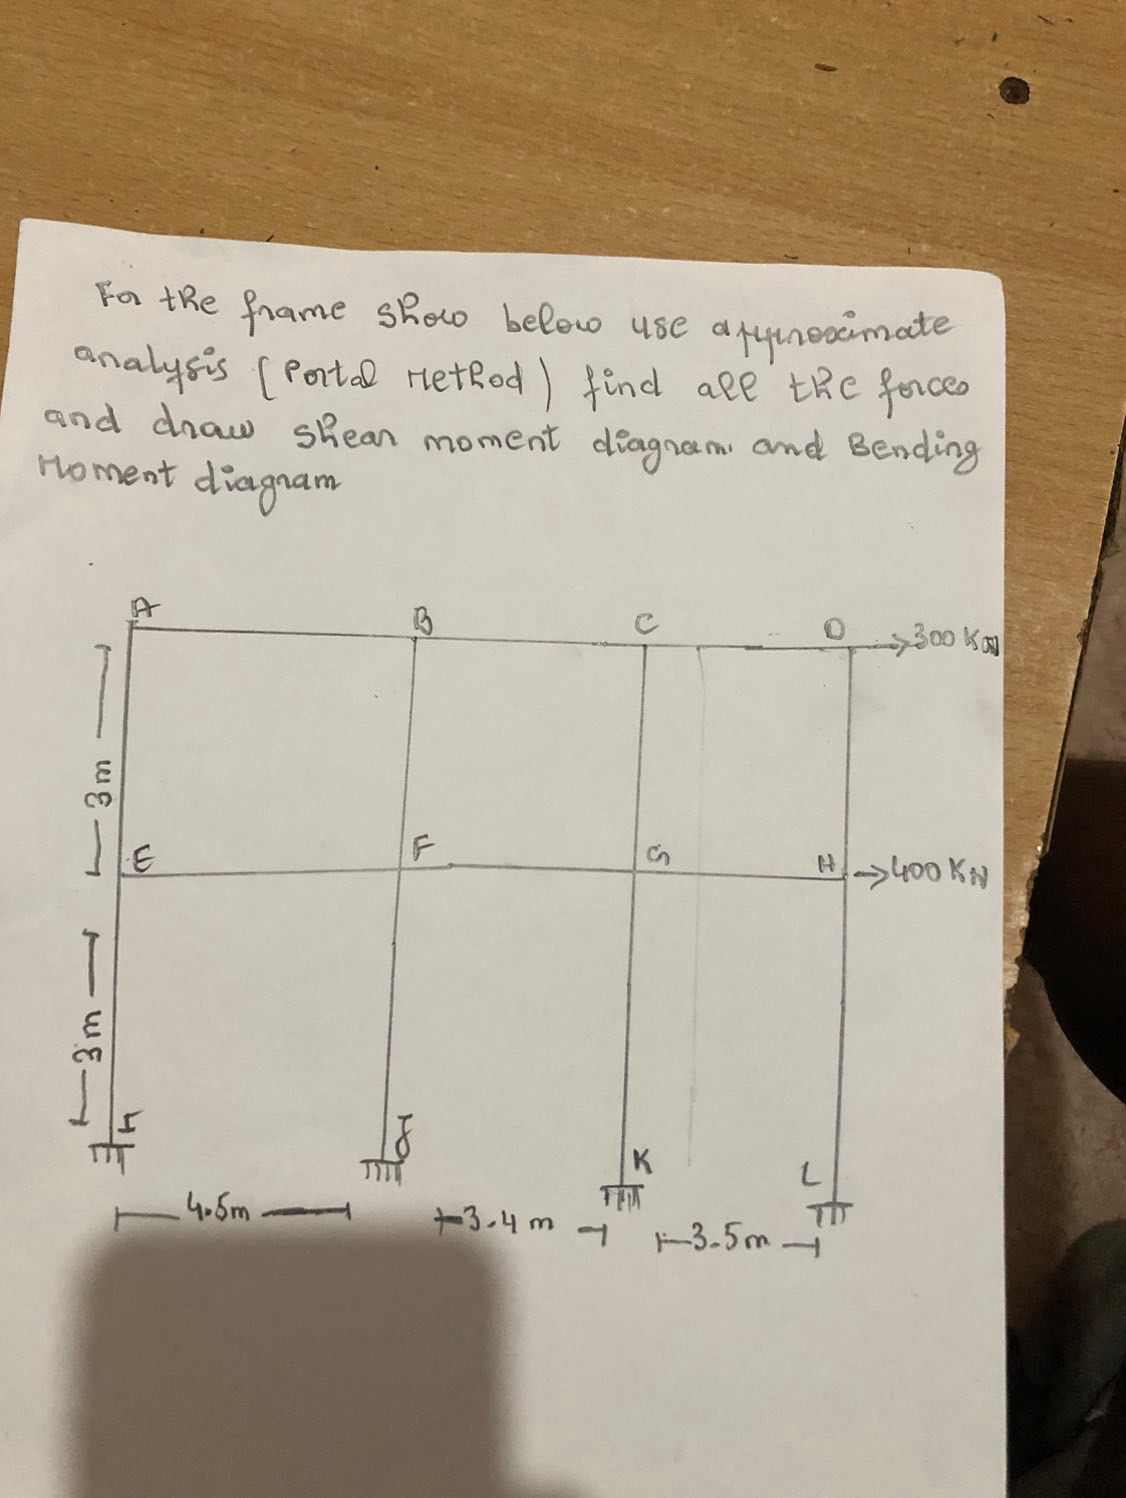 For the frame show below use approximate
analysis (Portal Method) find all the forces
and draw shear moment diagram and Bending
Moment diagram
A
B
C
D
300 KN
3m
E
F
G
H
400 KN
3m
J
K
L
4.5m
3.4 m
3.5m